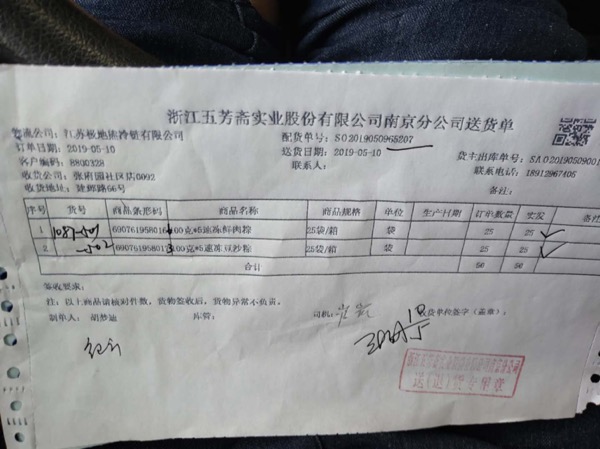 浙江五芳斋实业股份有限公司南京分公司送货单
物流公司：江苏极地熊冷链有限公司
配货单号：SO2019050965207
订单日期：2019-05-10
送货日期：2019-05-10
货主出库单号：SA02019050900
客户编码：8800328
联系人：
联系电话：18912967406
收货公司：张府园社区店0092
收货地址：建邺路66号
备注：
序号 货号 商品条形码 商品名称 商品规格 单位 生产日期 订单数量 实发 备注
1 69076195801 00克*5速冻鲜肉粽 25袋/箱 袋 25 25
2 502 69076195801 00克*5速冻豆沙粽 25袋/箱 袋 25 25
合计 50 50
签收要求：
注：以上商品请核对件数，货物签收后，货物异常不负责。
制单人：胡梦迪 库管： 司机： 收货单位签字（盖章）：
送(退)货专用章